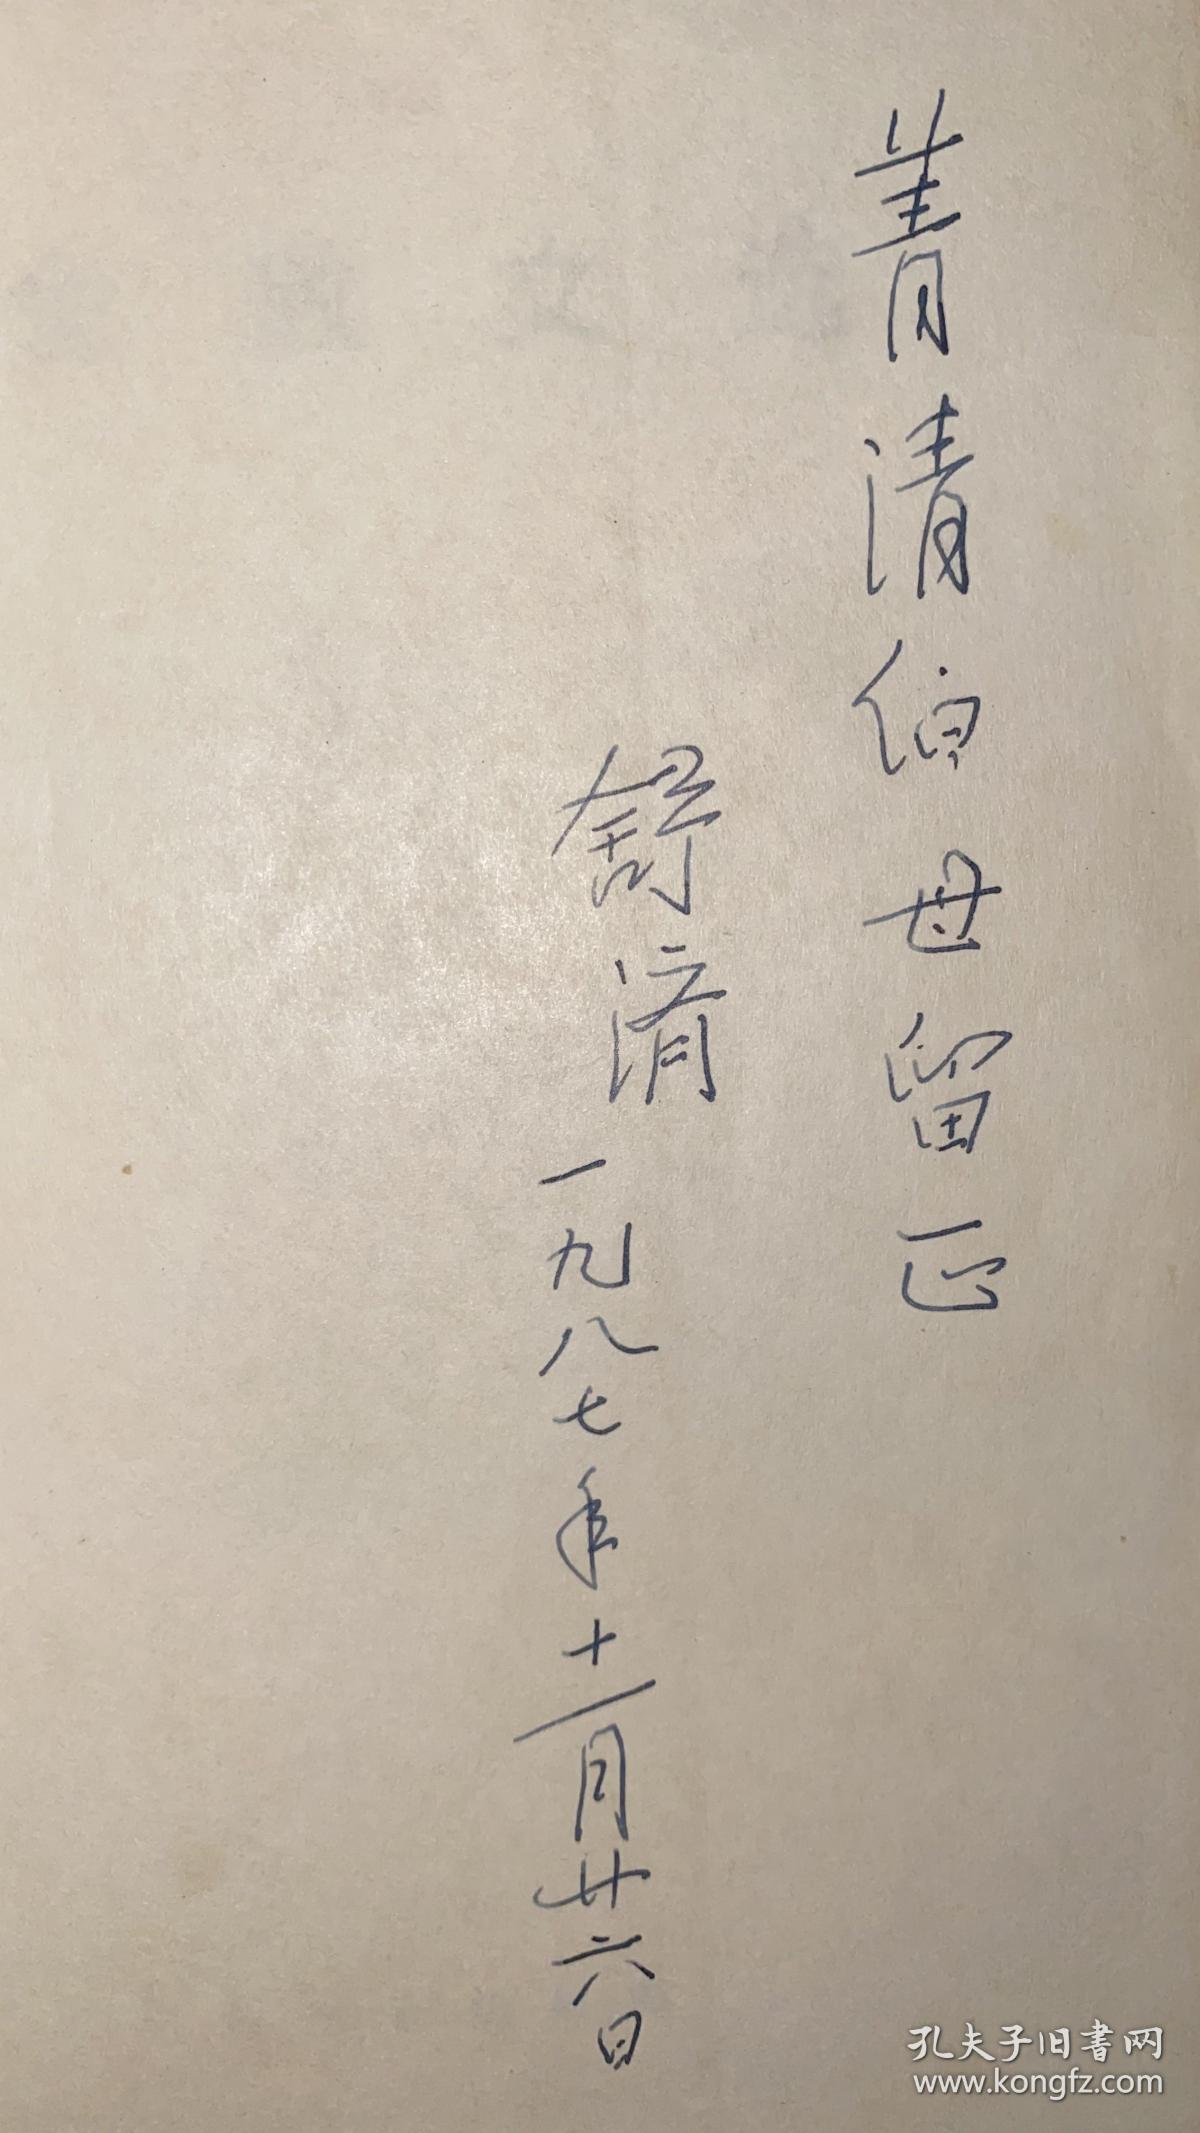 菁清伯母留正
舒济
一九八七年十一月廿六日
孔夫子旧书网
www.kongfz.com